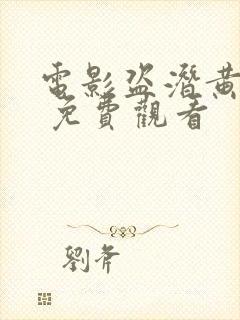 電影盜潛黃
免費觀看
劉斧